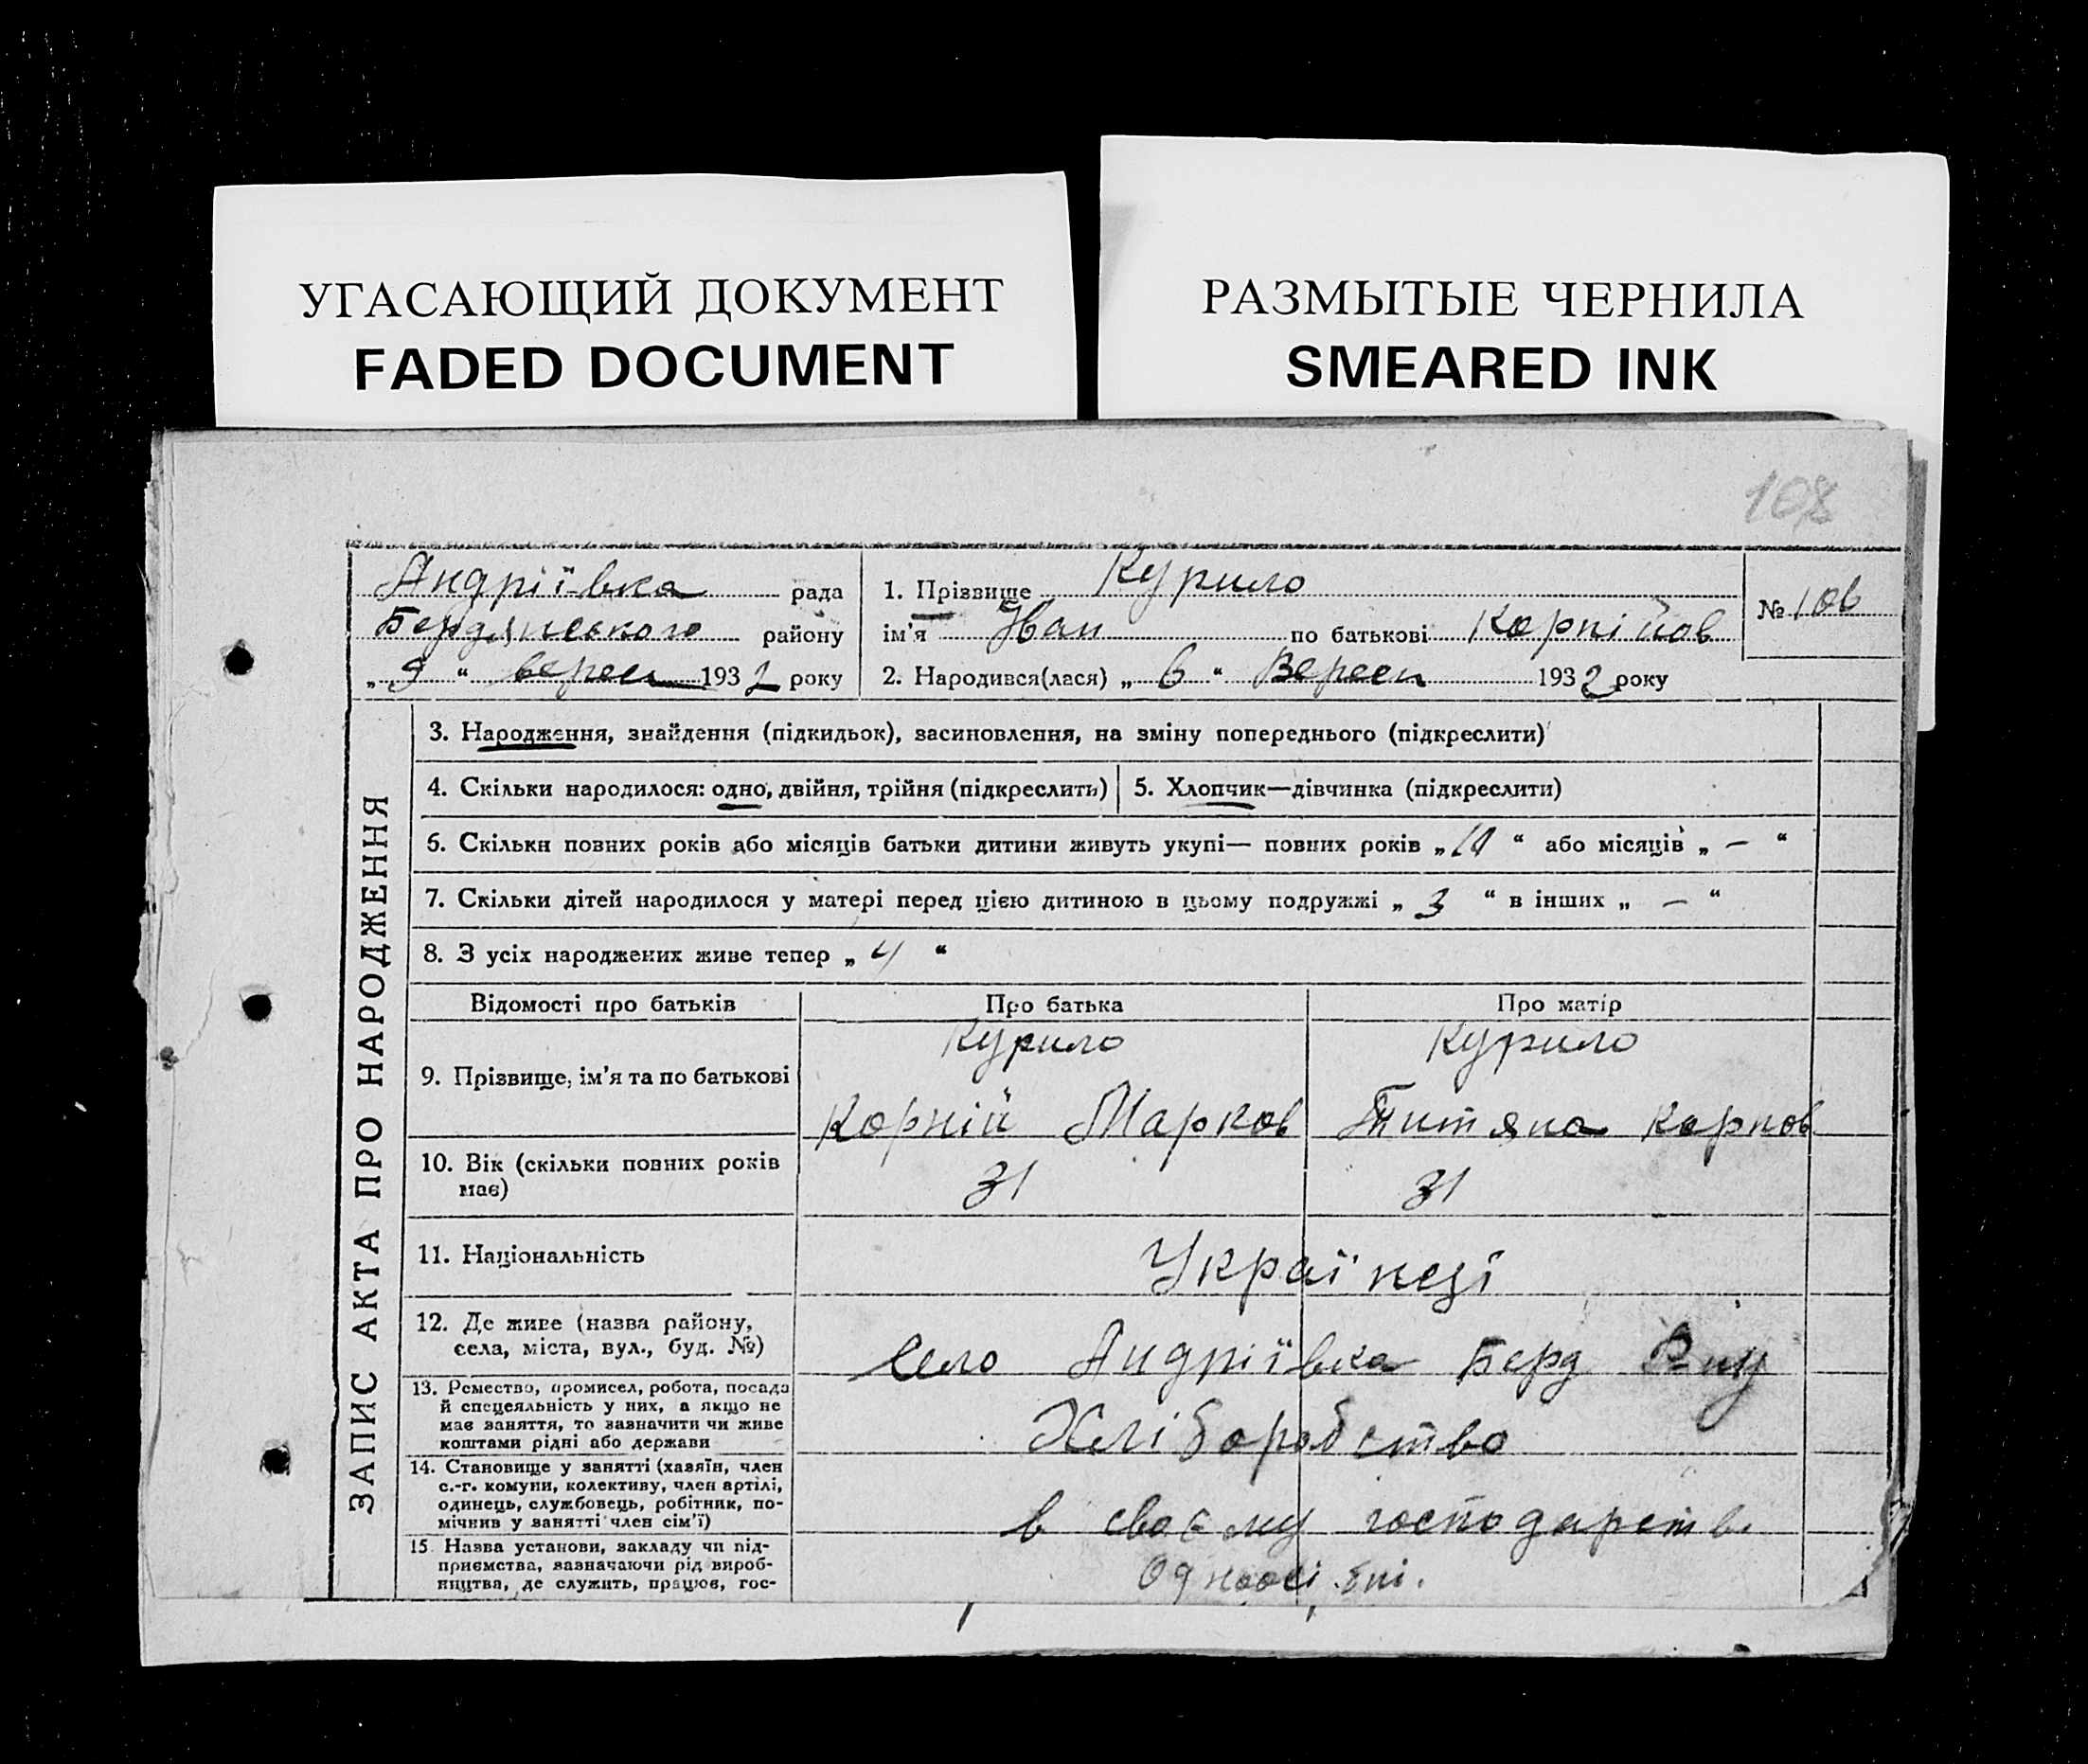 УГАСАЮЩИЙ ДОКУМЕНТ
FADED DOCUMENT
РАЗМЫТЫЕ ЧЕРНИЛА
SMEARED INK
108
Андріївка рада
Бердянського району
„ 9 “ верес 1932 року
1. Прізвище Курило
ім'я Іван по батькові Корнійов
2. Народився(лася) „ 6 “ Верес 1932 року
№ 106
ЗАПИС АКТА ПРО НАРОДЖЕННЯ
3. Народження, знайдення (підкидьок), засиновлення, на зміну попереднього (підкреслити)
4. Скільки народилося: одно, двійня, трійня (підкреслить)
5. Хлопчик—дівчинка (підкреслити)
6. Скільки повних років або місяців батьки дитини живуть укупі— повних років „ “ або місяців „ – “
7. Скільки дітей народилося у матері перед цією дитиною в цьому подружжі „ 3 “ в інших „ – “
8. З усіх народжених живе тепер „ 4 “
Відомості про батьків Про батька Про матір
9. Прізвище, ім'я та по батькові
Курило
Корній Марков
Курило
Титяна Карпов
10. Вік (скільки повних років
має)
31 31
11. Національність
Українці
12. Де живе (назва району,
села, міста, вул., буд. №)
Село Андріївка Берд Р-ну
13. Ремество, промисел, робота, посада
й спецеяльність у них, а якщо не
має заняття, то зазначити чи живе
коштами рідні або держави
Хліборобство
14. Становище у занятті (хазяїн, член
с.-г. комуни, колективу, член артілі,
одинець, службовець, робітник, по-
мічнив у занятті член сім'ї)
в своєму господарств.
15. Назва установи, закладу чи під-
приємства, зазначаючи рід вироб-
ництва, де служить, працює, гос-